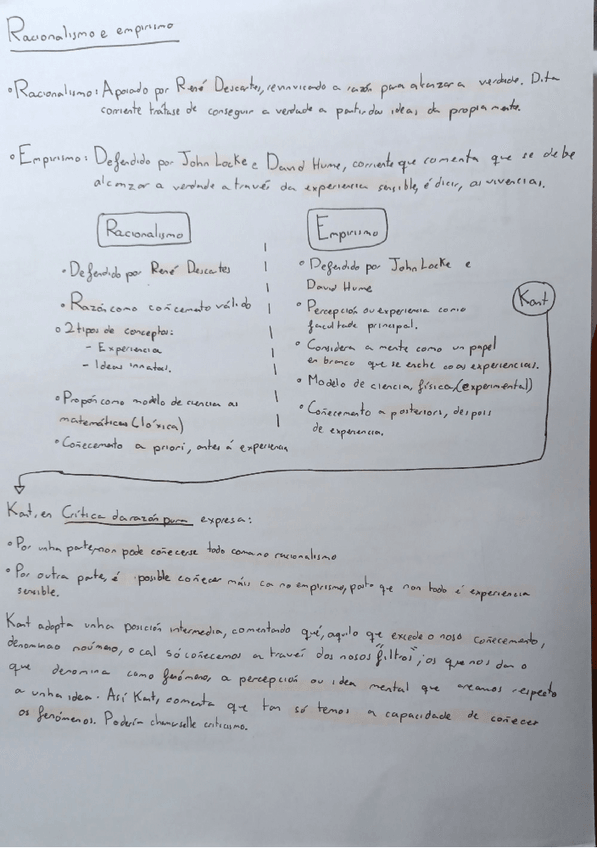 Racionalismo e empirismo
• Racionalismo: Apoiado por René Descartes, reivindicando a razón para alcanzar a verdade. Dita
corriente trátase de conseguir a verdade a partir das ideas da propia mente.
• Empirismo: Defendido por John Locke e David Hume, corriente que comenta que se debe
alcanzar a verdade a través da experiencia sensible, é dicir, as vivencias.
Racionalismo
• Defendido por René Descartes
• Razón como coñecemento válido
• 2 tipos de conceptos:
– Experiencia
– Ideas innatas.
• Propón como modelo de ciencia as
matemáticas (lóxica)
• Coñecemento a priori, antes á experiencia
Empirismo
• Defendido por John Locke e
David Hume
• Percepción ou experiencia como
facultade principal.
• Considera a mente como un papel
en branco que se enche coas experiencias.
• Modelo de ciencia, física, (experimental)
• Coñecemento a posteriori, despois
de experiencia.
Kant
Kant, en Crítica da razón pura expresa:
• Por unha parte, non pode coñecerse todo coma no racionalismo
• Por outra parte, é posible coñecer máis ca no empirismo, posto que non todo é experiencia
sensible.
Kant adopta unha posición intermedia, comentando que, aquilo que excede o noso coñecemento,
denominao noúmeno, o cal só coñecemos a través dos nosos "filtros", os que nos dan o
que denomina como fenómeno, a percepción ou idea mental que creamos respecto
a unha idea. Así Kant, comenta que tan só temos a capacidade de coñecer
os fenómenos. Poderían chamarselle criticismo.